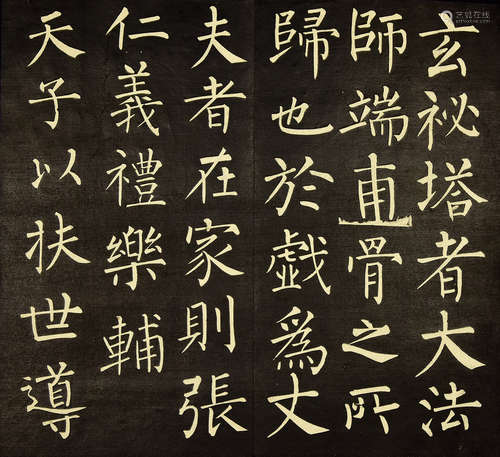 玄祕塔者大法
師端甫骨之所
歸也於戲為丈
夫者在家則張
仁義禮樂輔
天子以扶世導